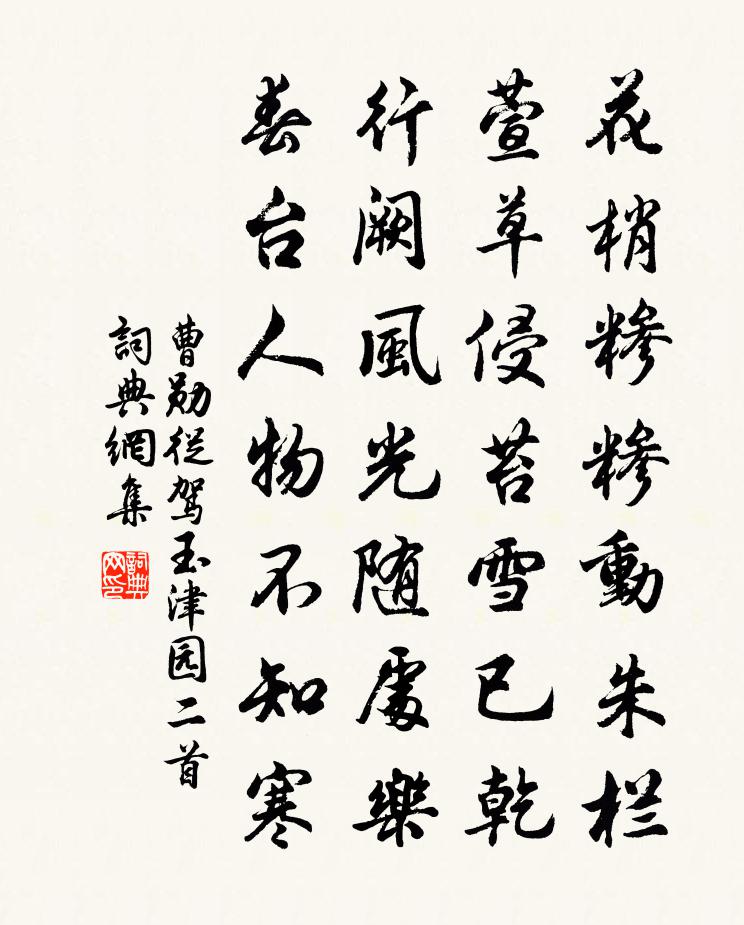 花梢糝糝動朱栏
萱草侵苔雪已乾
行阙風光随處樂
春台人物不知寒
曹勋從駕玉津园二首
詞典網集
詞典网印